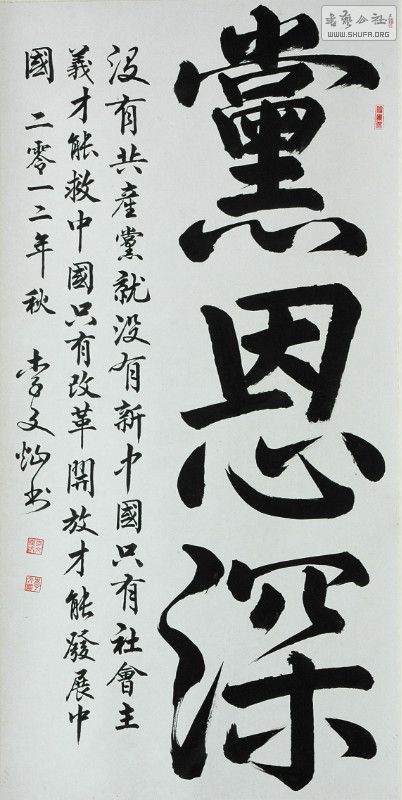 黨恩深
没有共產黨就没有新中國只有社會主
義才能救中國只有改革開放才能發展中
國 二零一二年秋 李文灿书
书艺公社
WWW.SHUFA.ORG